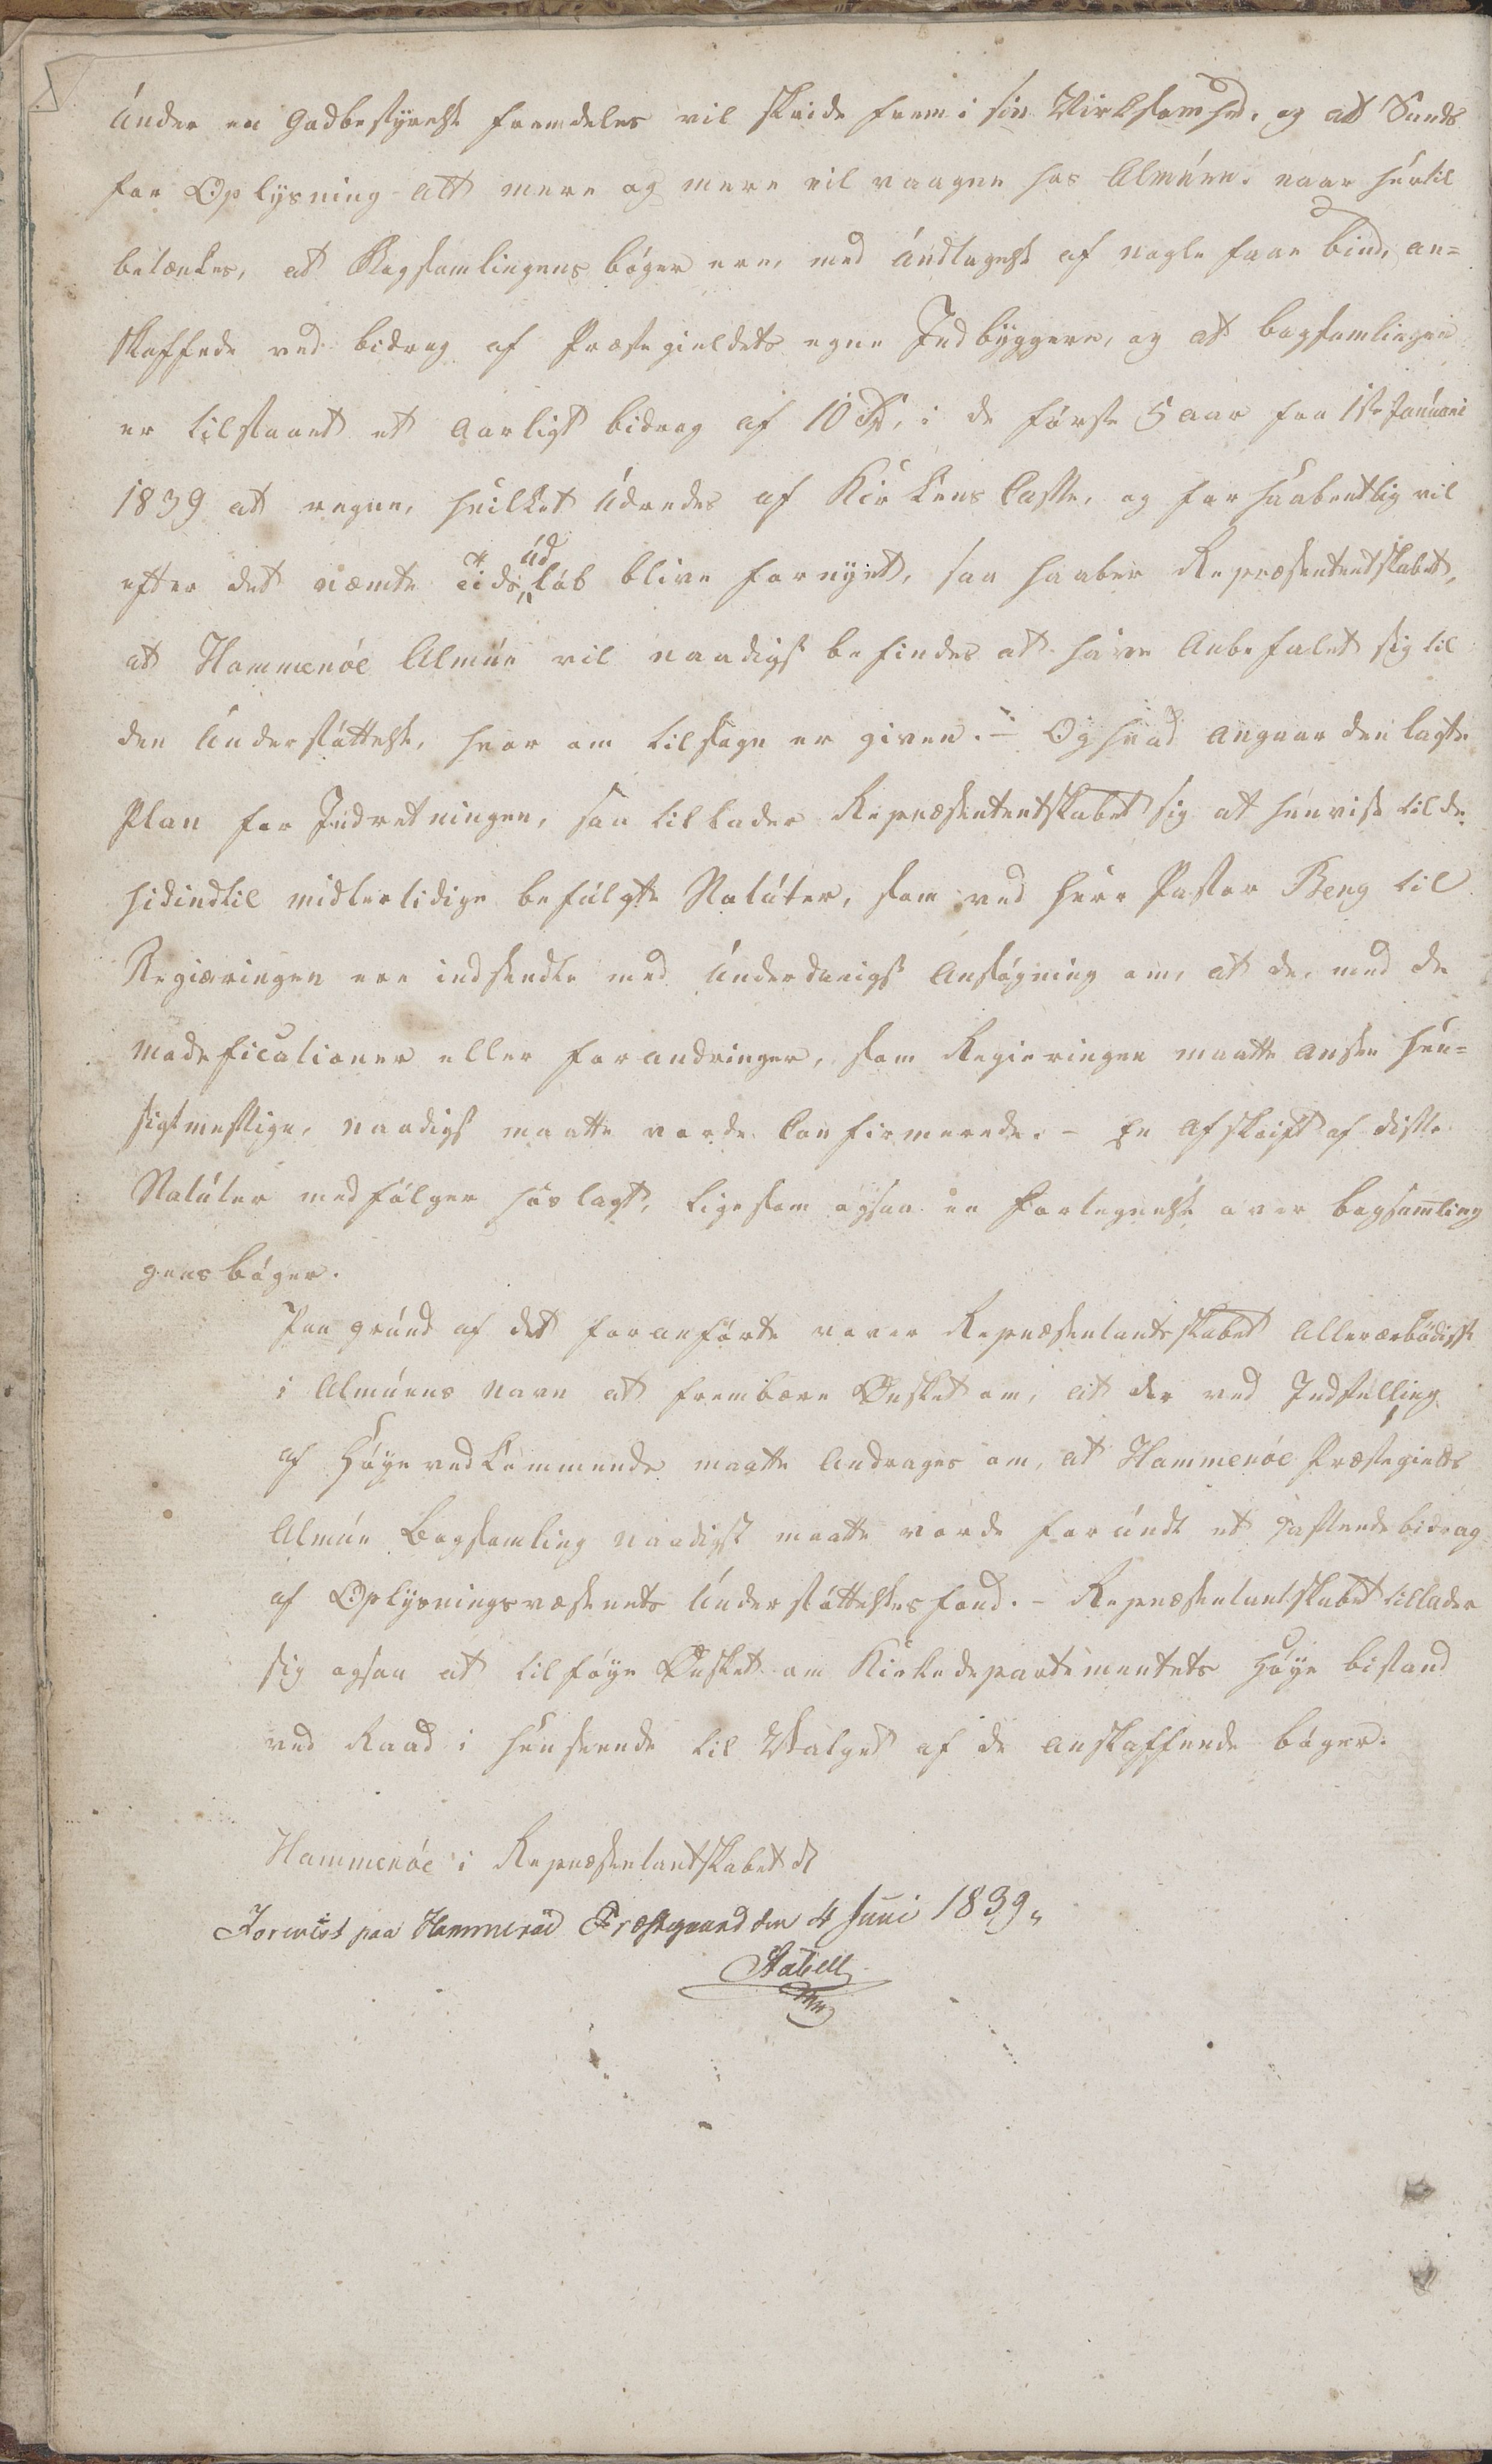 under en godbestyrelse fremdeles vil skride frem i sin Virksomhed, og at Sands
for Oplysning alt mere og mere vil vaagne hos Almuen. naar hertil
betænkes, at Bogsamlingens bøger ere, med undtagelse af nogle faae bind, an=
skaffede ved bidrag af Præstegieldets egne Indbyggere, og at bogsamlingen
er tilstaaet et aarligt bidrag af 10 Spd, i de første 5 aar fra 1ste Januari
1839 at regne, hvilket udredes af Kirkens Casse, og forhaabentlig vil
efter det næmte tids udløb blive fornyet, saa haaber Repræsententskabet,
at Hammerøe Almue vil naadigst befindes at have Anbefalet sig til
den Understøttelse, hvor om tilsagn er given. - Og hvad angaar den lagte
Plan for Indretningen, saa tillader Repræsententskabet sig at henvise til de
hidindtil midlertidige befulgte Statuter, som ved Herr Pastor Berg til
Regiæringen ere indsendte med underdanigst Ansøgning om, at de, med de
modeficationer eller forandringer, som Regieringen maatte ansee hen=
sigtmessige, naadigst maatte vorde Confirmerede. - En Afskrift af disse
Statuter medfølger hoslagt, ligesom ogsaa en Fortegnelse over bogsamling
gens bøger.
Paa grund af det foranførte vover Repræsentantskabet Allerærbødigst
i Almuens Navn at frembære Ønsket om, at der ved Indstilling
af Høye vedkommende maatte Andrages om, at Hammerøe Præstegields
Almue Bogsamling naadigst maatte vorde forundt et passende bidrag
af Oplysningsvæsenets Understøttelsesfond. - Repræsentantskabet tillader
sig ogsaa at tilføye Ønsket om Kirkedepartementets Høye bistand
ved Raad i henseende til Valget af de anskaffende bøger.
Hammerøe i Repræsentantskabet d
Forevist paa Hammerøe Præstegaard den 4 Juni 1839.
Stabell